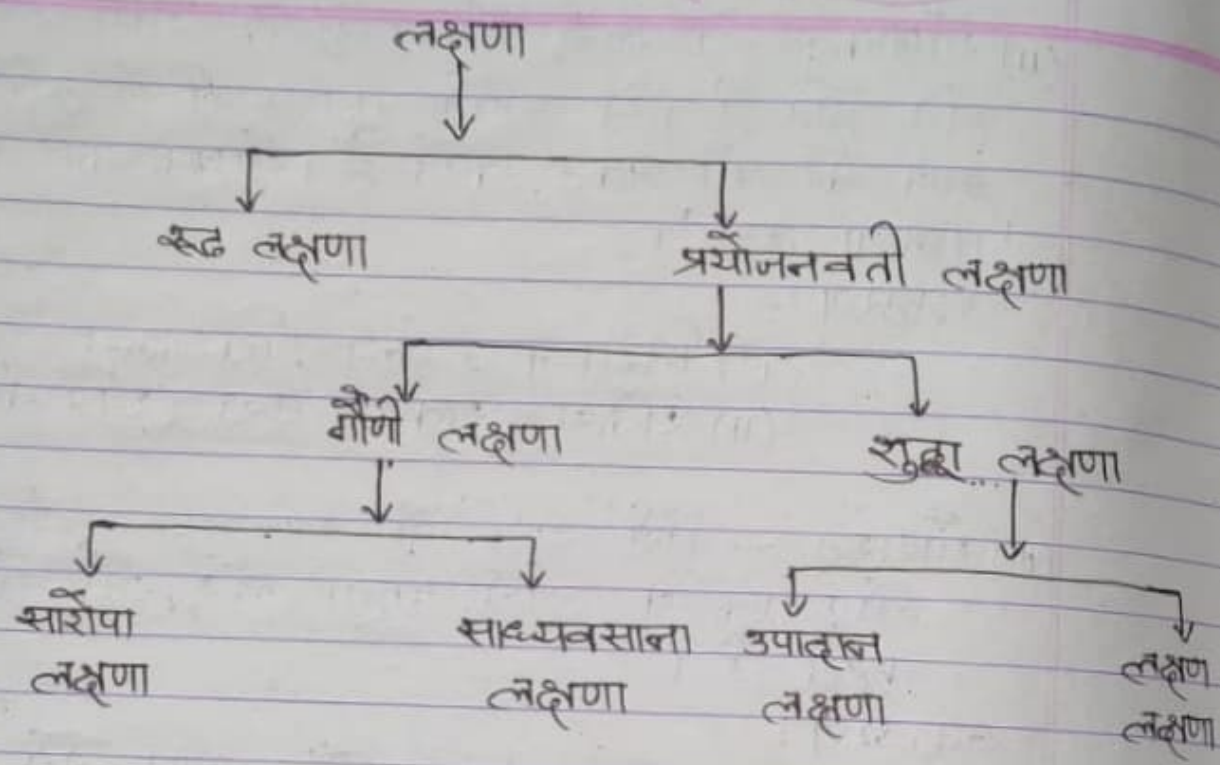 लक्षणा
रूढ लक्षणा
प्रयोजनवती लक्षणा
गौणी लक्षणा
शुद्धा लक्षणा
सारोपा
लक्षणा
साध्यवसाना
लक्षणा
उपादान
लक्षणा
लक्षण
लक्षणा